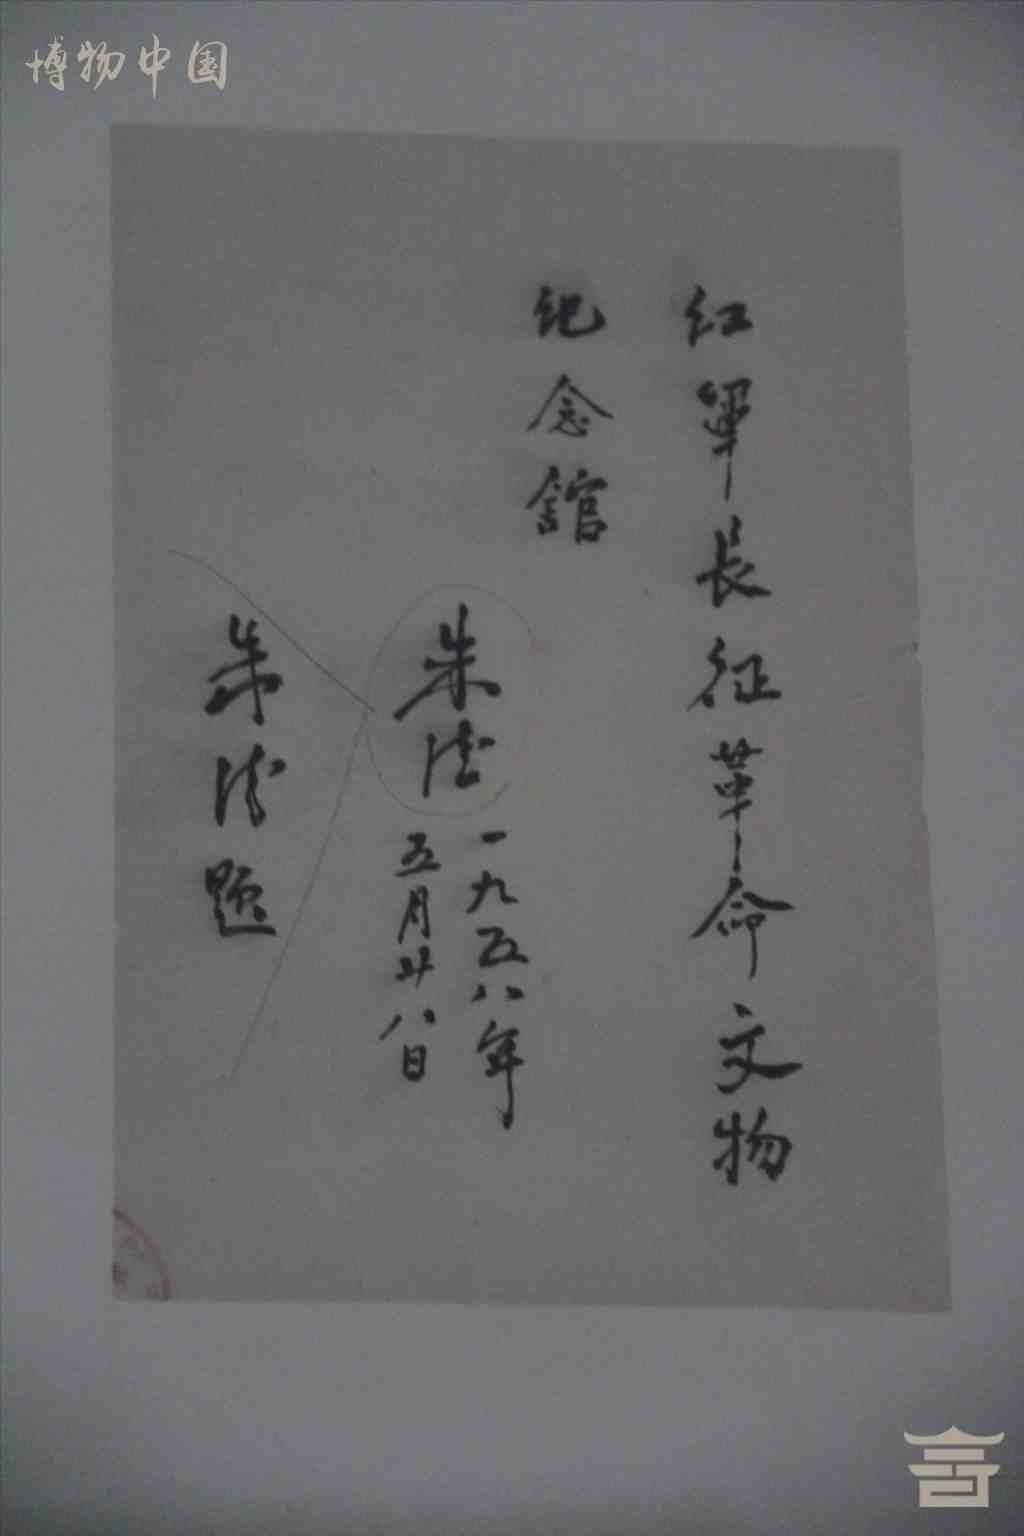 博物中国
红軍長征革命文物
纪念舘
朱德
一九五八年
五月廿八日
朱德题